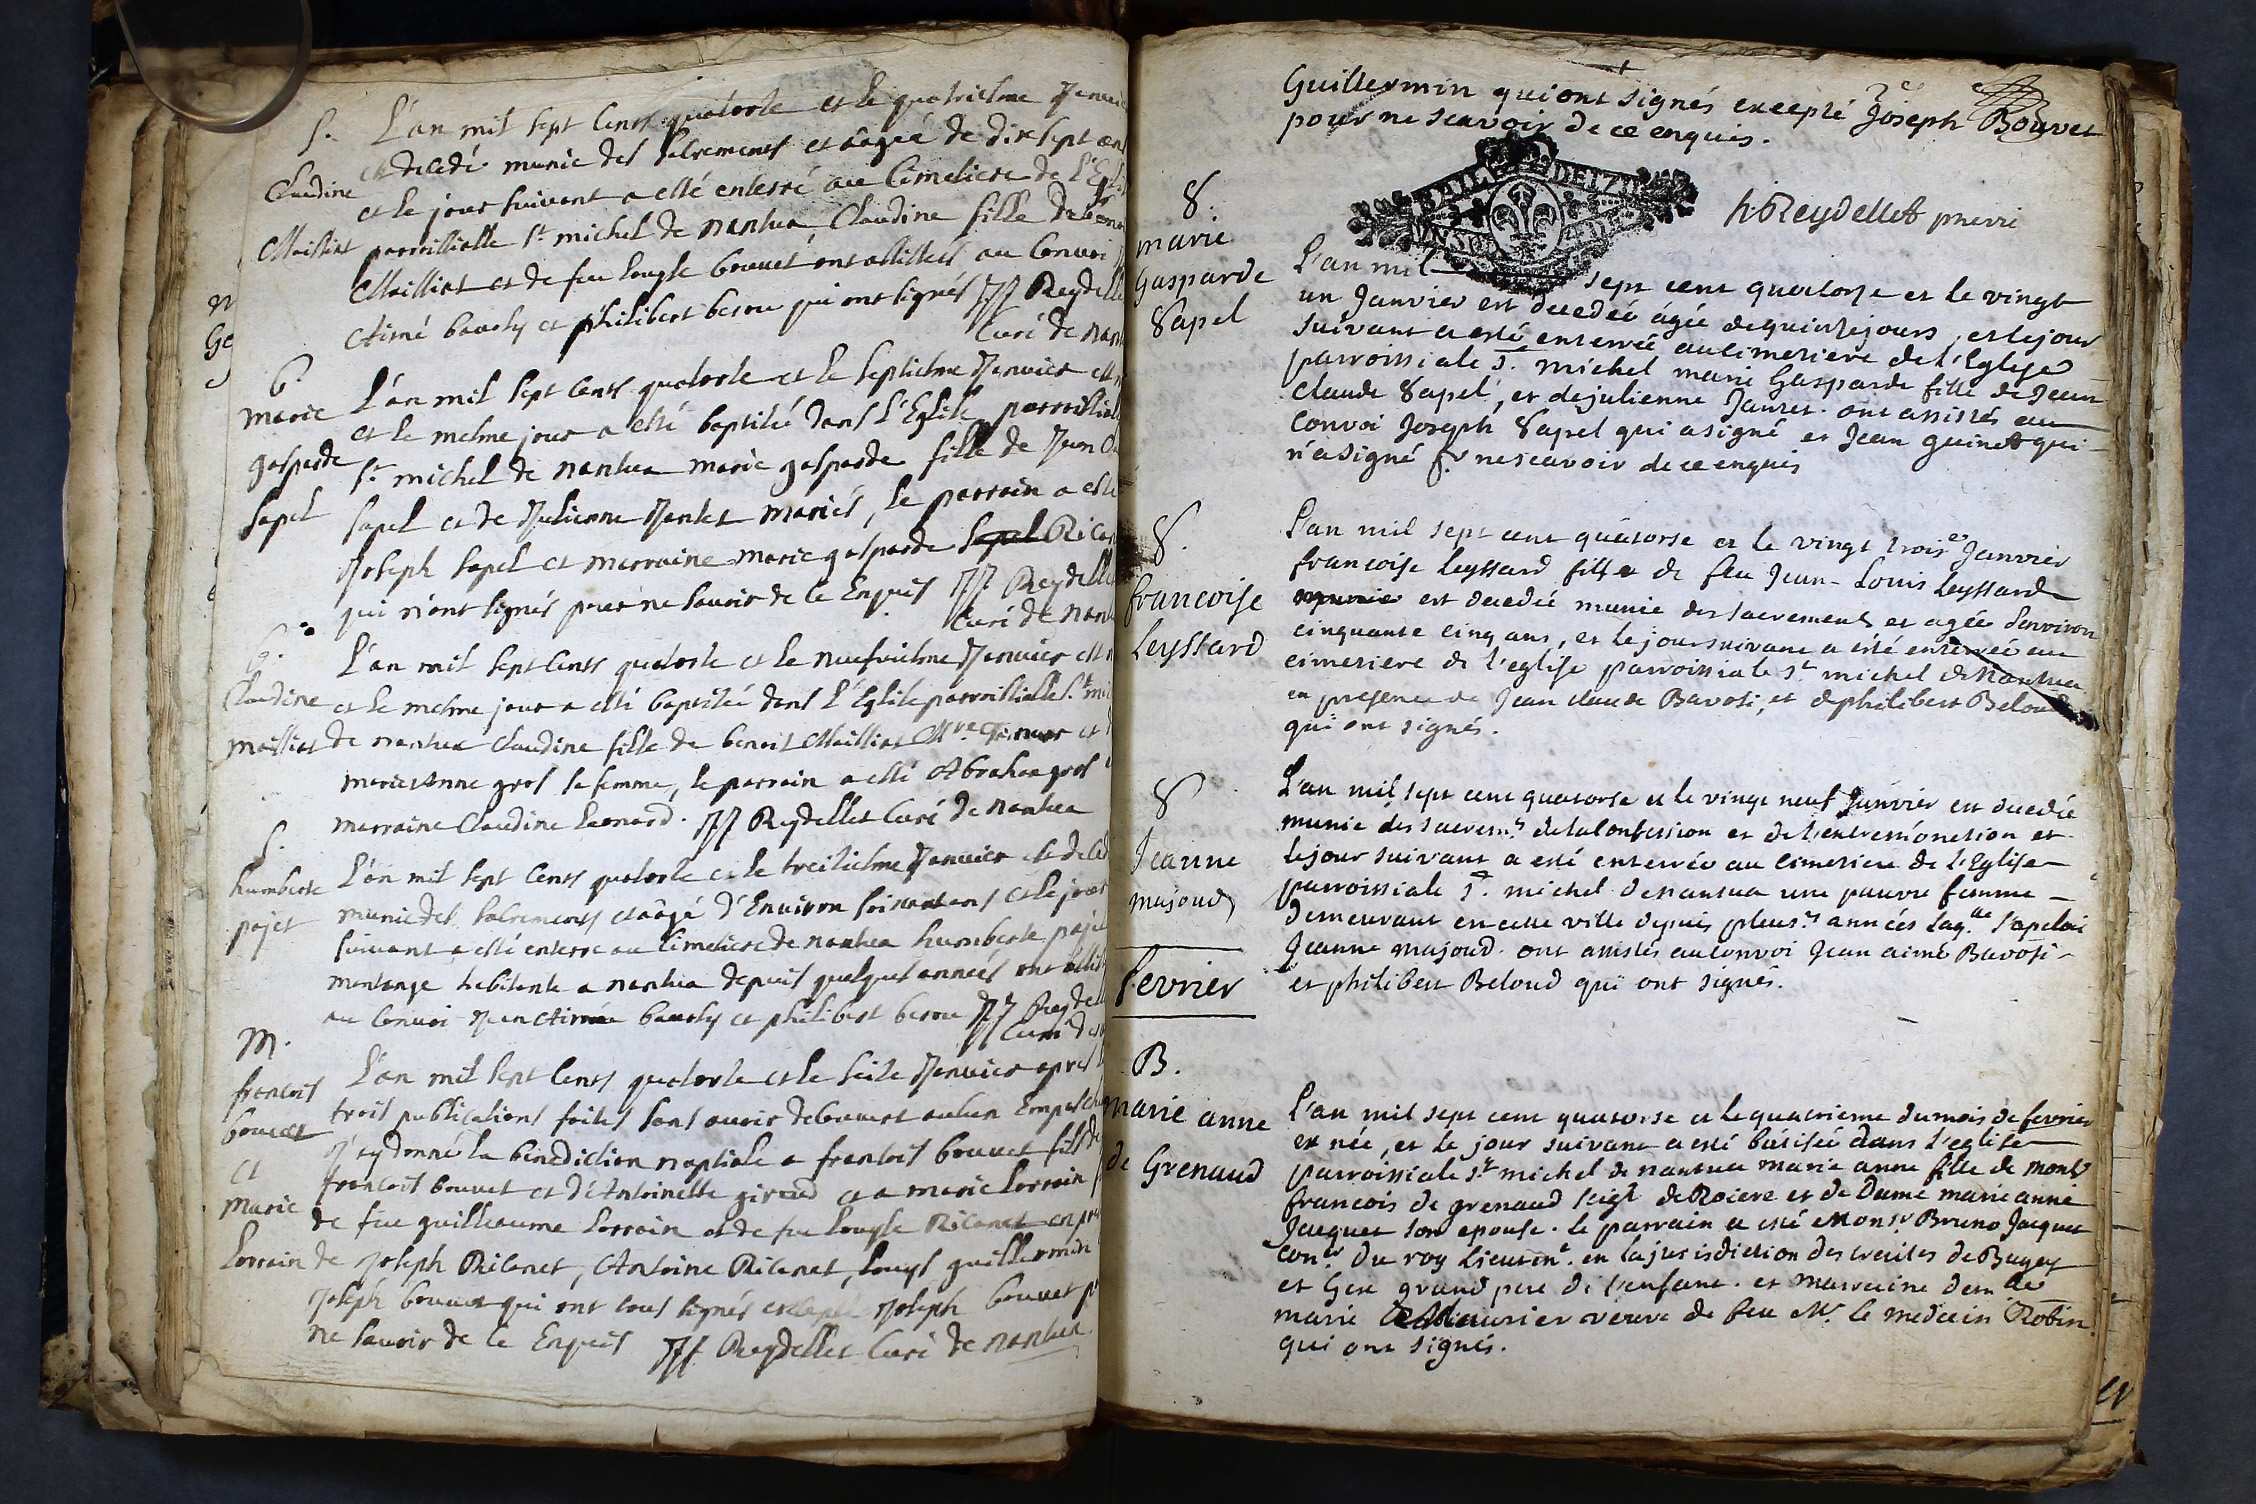 S.
Claudine
Mailliat
L'an mil sept Cents quatorse et le quatriesme Janvie
est decedé munie des sacrements et aagée de dix sept ans
et le jour suivant a esté enterré au Cimetiere de l'Egl
parroissialle St michel de nantua Claudine fille de
Mailliat et de feu bouvet ont assistés au Convoi
Aimé bavosy et philibert belou qui ont signés JJ Reydelle
Curé de nant
b.
marie
gasparde
sapel
L'an mil sept Cents quatorse et le septiesme Janvier est
et le mesme jour a esté baptisé dans l'Eglise parroissial
St michel de nantua marie gasparde fille de Jean
sapel et de Julienne Jantet mariés, le parrain a esté
Joseph sapel et marraine marie gasparde sapel
qui n'ont signés pour ne savoir de ce Enquis JJ. Reydelle
Curé de nant
b.
Claudine
mailliat
L'an mil sept Cents quatorse et le neufviesme Janvier est
et le mesme jour a esté baptisée dans l'Eglise parroissialle St mi
de nantua Claudine fille de benoit Mailliat et
marieanne gros sa femme, le parrain a esté Abraham gros
marraine Claudine Leonard. JJ Reydellet Curé de nantua
S.
humberte
pajet
L'an mil sept Cents quatorse et le treisiesme Janvier est deced
munie des sacrements et aagé d'Environ soixante ans et le jour
suivant a esté enterré au Cimetiere de nantua humberte pajet
montange habitante a nantua depuis quelques années ont assist
au Convoi Jean Aimé bavosy et philibert belou JJ Reydell
Curé de
M.
francois
bouvet
et
marie
Lorrain
L'an mil sept Cents quatorse et le seise Janvier apres
trois publications faites sans avoir decouvert aucun Empesche
j'ay donné la benediction nuptiale a francois bouvet fils de
francois bouvet et d'Antoinette giroud et a marie Lorrain
de feu guilleaume Lorrain et de feu en pre
de Joseph Ricanet, Antoine Ricanet, Louys guillermin
Joseph bouvet qui ont tous signés excepté Joseph bouvet p
ne savoir de ce Enquis JJ. Reydellet Curé de nantua
Guillermin qui ont signés excepté Joseph Bouvet
pour ne scavoir de ce enquis.
Reydellet
S.
marie
Gasparde
Sapel
L'an mil sept cent quatorse et le vingt
un Janvier est decedée agée de quinse jours, et le jour
suivant a esté enterrée au cimetiere de l'Eglise
parroissiale St. michel marie Gasparde fille de Jean
Claude Sapel, et de julienne Jantet. ont assistés au
Convoi Joseph Sapel qui a signé et Jean guinet qui
n'a signé pr ne scavoir de ce enquis
S.
francoise
Leyssard
L'an mil sept cent quatorse et le vingt trois Janvier
francoise Leyssard fille de feu Jean-Louis Leyssard
munie est decedée munie des sacrements et agée denviron
cinquante cinq ans, et le jour suivant a esté enterrée au
cimetiere de l'eglise parroissiale St michel de Nantua
en presence de Jean claude Bavosi, et de philibert Belou
qui ont signés.
S
Jeanne
majoud
L'an mil sept cent quatorse et le vingt neuf Janvier est decedée
munie des sacremts de la Confession et de l'extremonction et
le jour suivant a esté enterrée au cimetiere de l'Eglise
parroissiale St. michel de Nantua une pauvre femme
demeurant en cette ville depuis pleusrs années laqlle s'apeloi
Jeanne majoud. ont assistés au Convoi Jean aimé Bavosi
et philibert Beloud qui ont signés.
fevrier
B.
marie anne
de Grenaud
L'an mil sept cent quatorse et le quatrieme du mois de fevrier
est née, et le jour suivant a esté batisée dans l'eglise
parroissiale St michel de nantua marie anne fille de monsr
francois de grenaud seigr de Roiere et de Dame marie anne
Jacquet son epouse. le parrain a esté Monsr Bruno Jacquet
Conr. du roy Lieutent. en la jurisdiction des traites de Bugey
et Gex grand pere de l'enfant. et marraine demlle
marie veuve de feu Mr. le medecin Robin
qui ont signés.